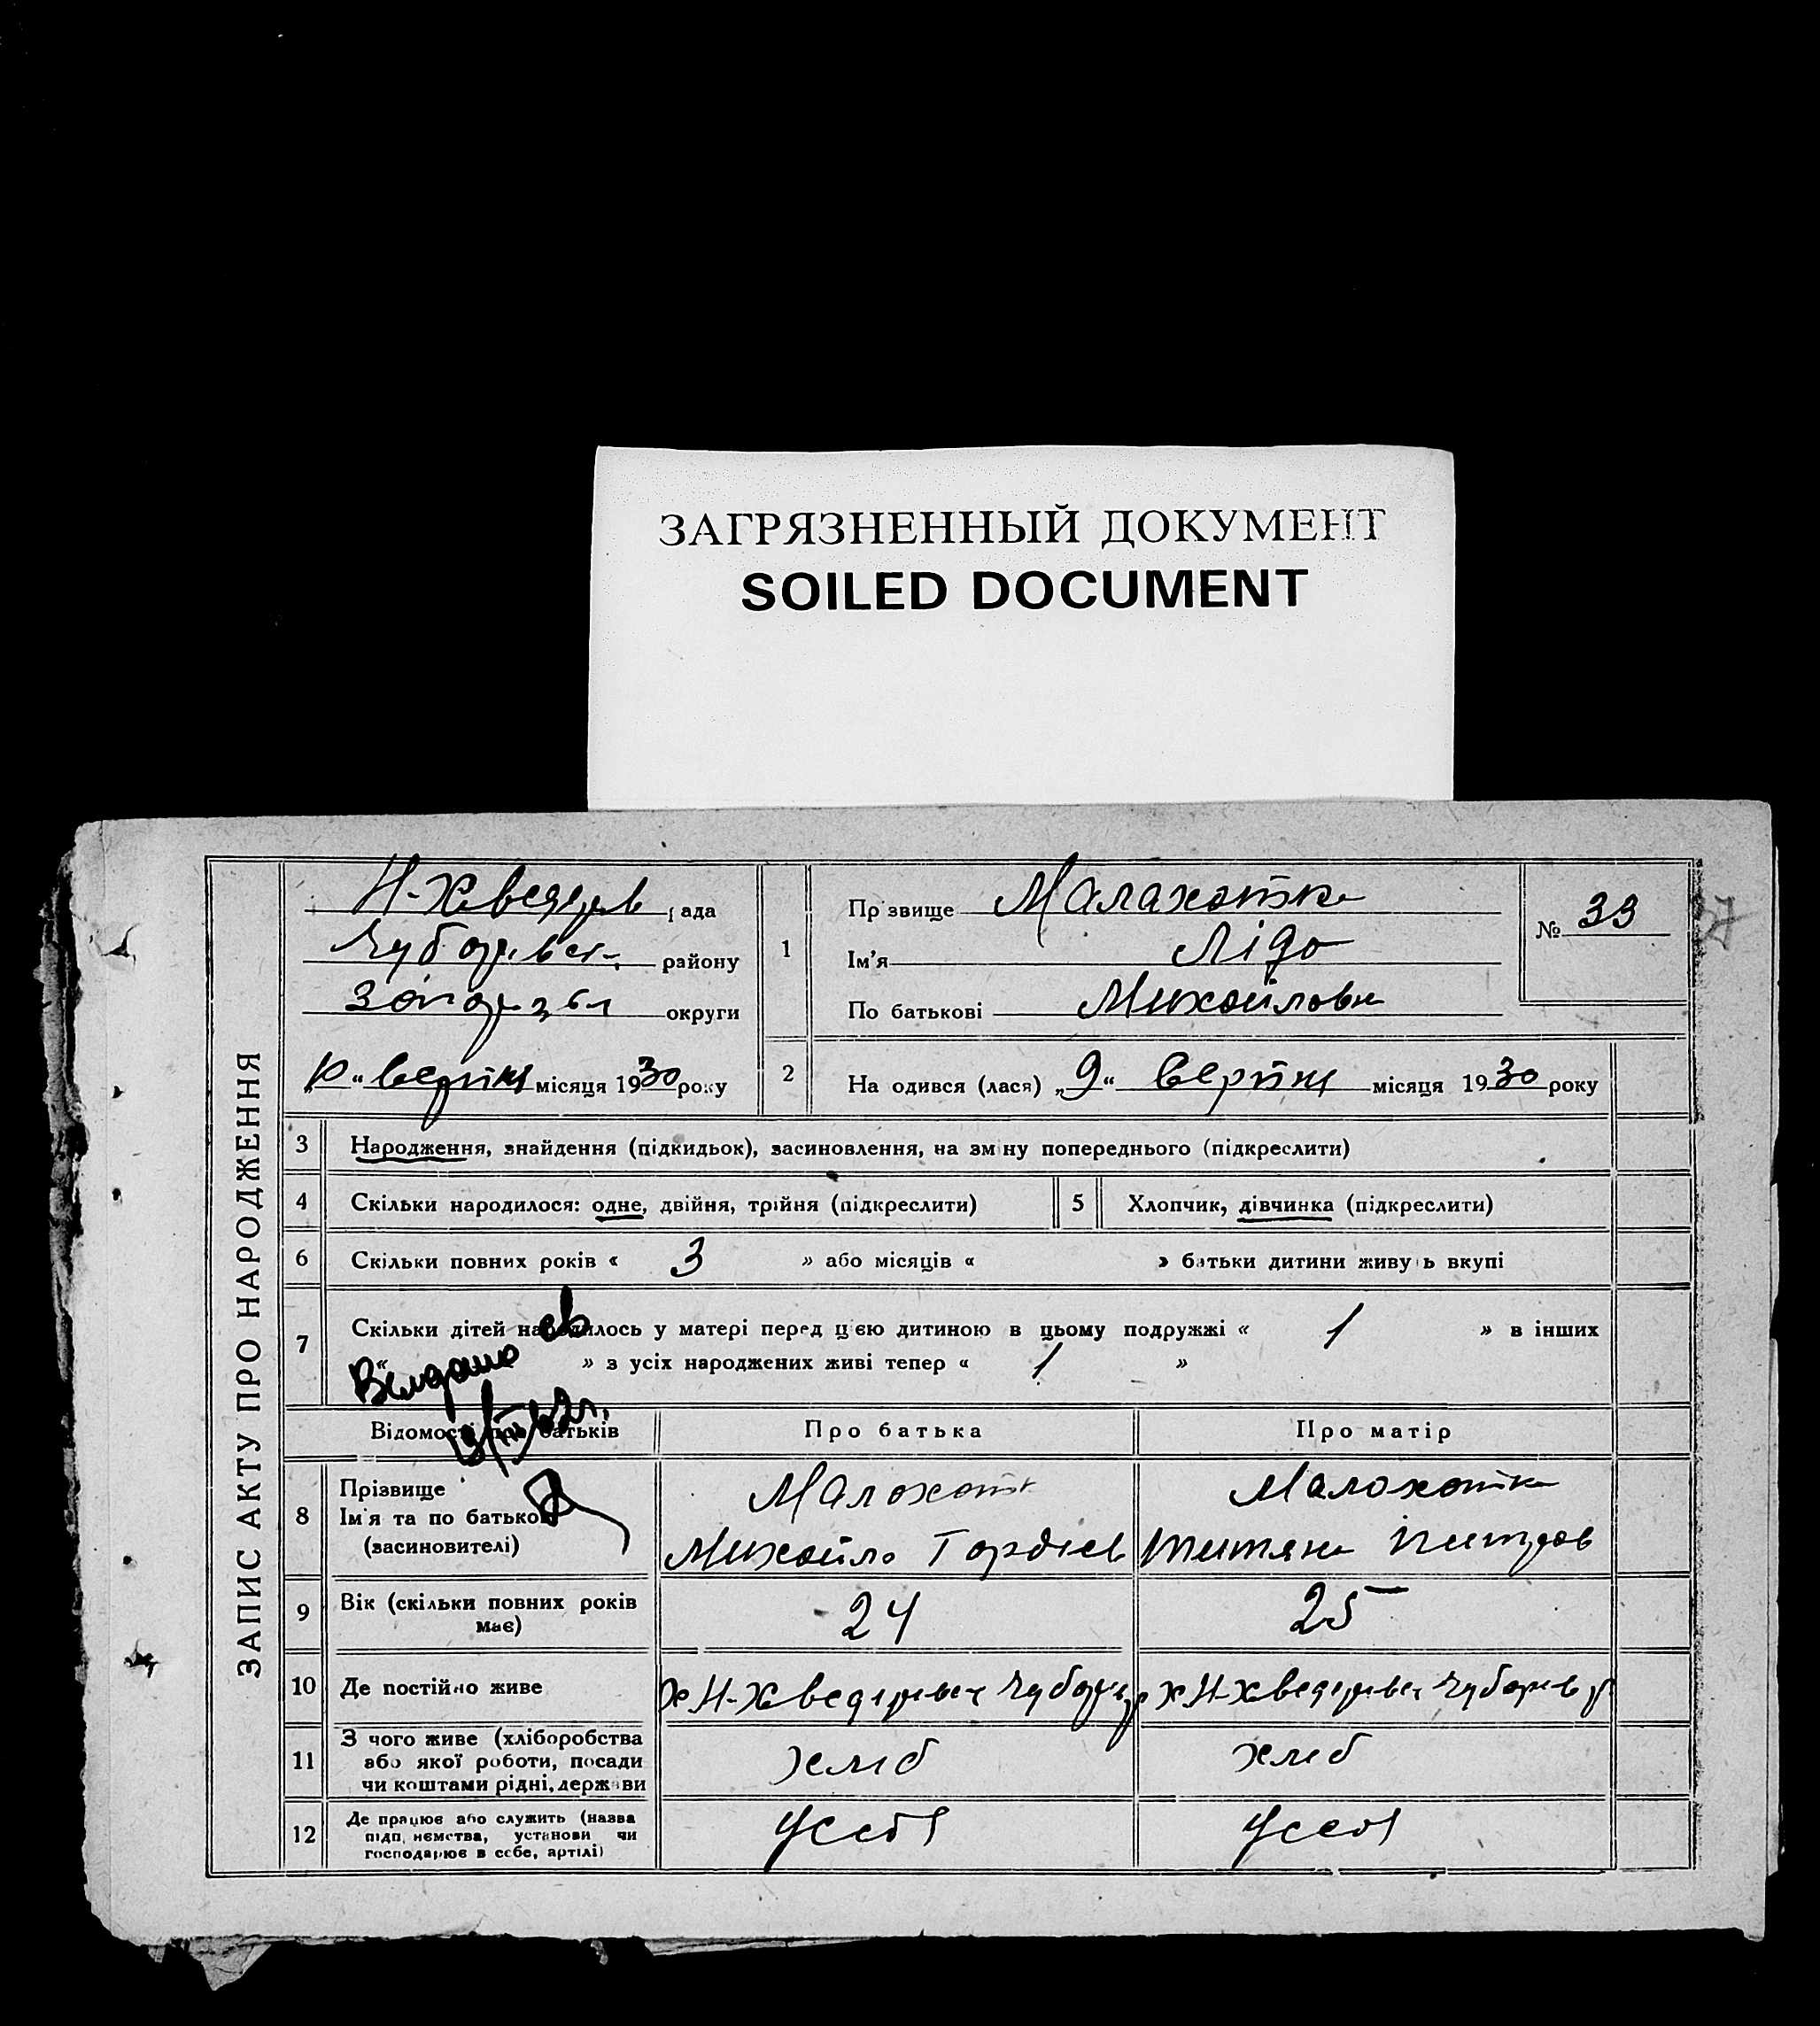 ЗАГРЯЗНЕННЫЙ ДОКУМЕНТ
SOILED DOCUMENT
ЗАПИС АКТУ ПРО НАРОДЖЕННЯ
Н-Хведорів рада
Чубарівськ району
округи
10 "верпня місяця 1930 року
1
Прізвище Малахатка
Ім'я Ліда
По батькові Михайловн
№ 33
37
2
На одився (лася) „9" верпня місяця 1930 року
3 Народження, знайдення (підкидьок), засиновлення, на зміну попереднього (підкреслити)
4 Скільки народилося: одне, двійня, трійня (підкреслити)
5 Хлопчик, дівчинка (підкреслити)
6 Скільки повних років « 3 » або місяців « » батьки дитини живуть вкупі
7 Скільки дітей народилось у матері перед цією дитиною в цьому подружжі « 1 » в інших
« » з усіх народжених живі тепер « 1 »
Выдано св
Відомості про батьків Про батька Про матір
8 Прізвище Малохатк Малохатка
Ім'я та по батькові Михайло Гордієв Титяна Питров
(засиновителі)
9 Вік (скільки повних років має) 24 25
10 Де постійно живе х Н-Хведорівка Чубар р х Н-Хведорівка Чубарів р
11 З чого живе (хліборобства хліб хліб
або якої роботи, посади
чи коштами рідні, держави
12 Де працює або служить (назва У себя У себя
підприємства, установи чи
господарює в себе, артілі)